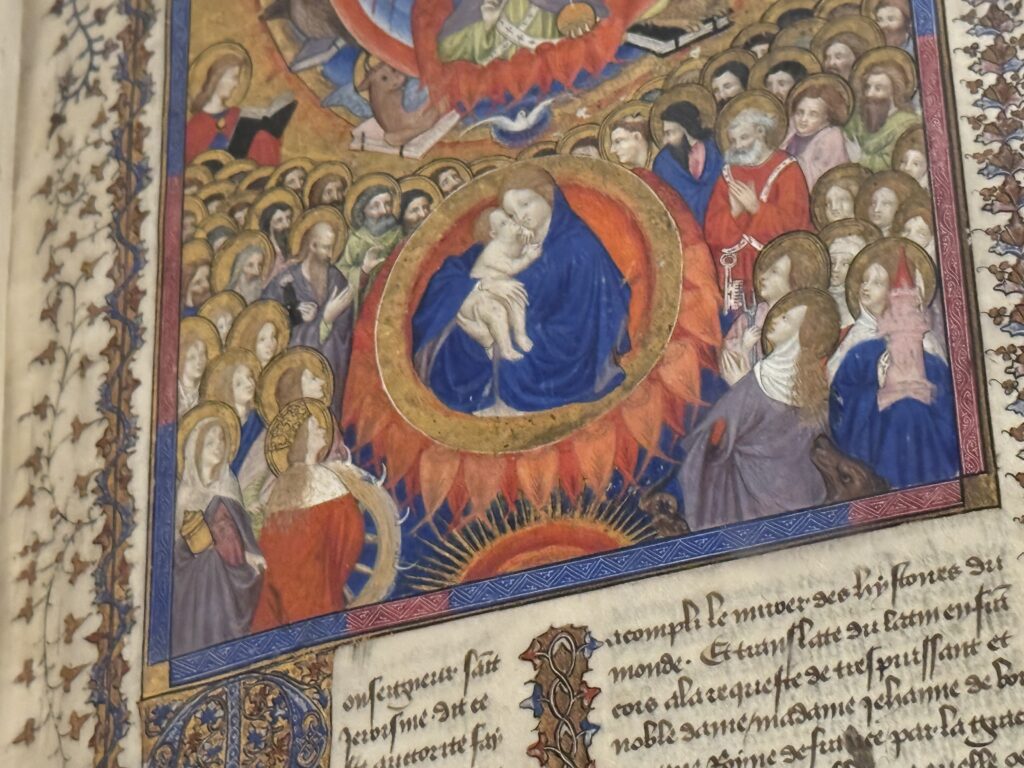 onseigneur sait
Jerosme dit ce
auctorite fay
acompli le miroer des hystoires du
monde. Et translate du latin en fran
cois a la requeste de trespuissant et
noble dame madame Jehanne de bor
Royne de france par la grace